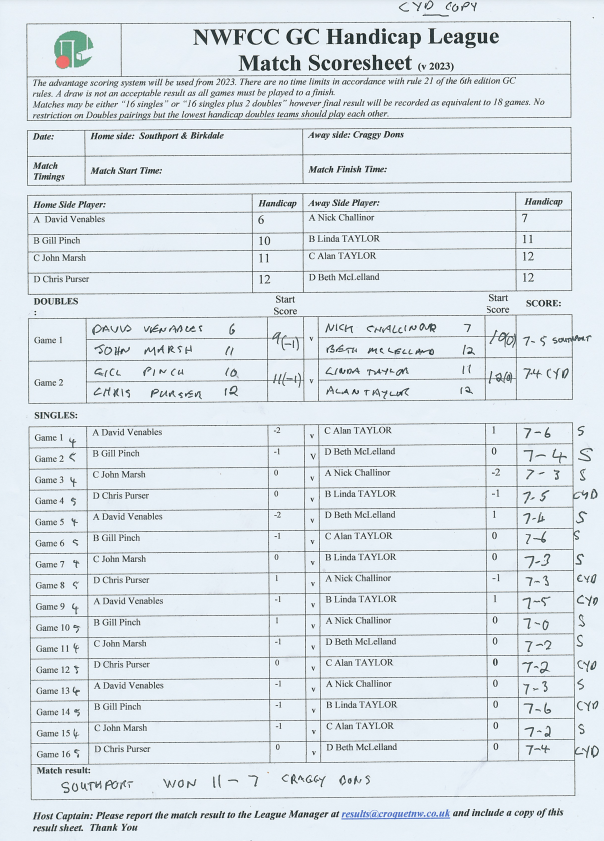 CYD COPY
NWFCC GC Handicap League
Match Scoresheet (v 2023)
The advantage scoring system will be used from 2023. There are no time limits in accordance with rule 21 of the 6th edition GC
rules. A draw is not an acceptable result as all games must be played to a finish.
Matches may be either "16 singles" or "16 singles plus 2 doubles" however final result will be recorded as equivalent to 18 games. No
restriction on Doubles pairings but the lowest handicap doubles teams should play each other.
Date: Home side: Southport & Birkdale Away side: Craggy Dons
Match Timings Match Start Time: Match Finish Time:
Home Side Player: Handicap Away Side Player: Handicap
A David Venables 6 A Nick Challinor 7
B Gill Pinch 10 B Linda TAYLOR 11
C John Marsh 11 C Alan TAYLOR 12
D Chris Purser 12 D Beth McLelland 12
DOUBLES : Start Score Start Score SCORE:
Game 1 DAVID VENABLES 6 9(-1) v NICK CHALLINOUR 7 10(0) 7-5 SOUTHPORT
JOHN MARSH 11 BETH MCLELLAND 12
Game 2 GILL PINCH 10 11(-1) v LINDA TAYLOR 11 12(0) 74 CYD
CHRIS PURSER 12 ALAN TAYLOR 12
SINGLES:
Game 1 4 A David Venables -2 v C Alan TAYLOR 1 7-6 S
Game 2 5 B Gill Pinch -1 V D Beth McLelland 0 7-4 S
Game 3 4 C John Marsh 0 v A Nick Challinor -2 7-3 S
Game 4 5 D Chris Purser 0 v B Linda TAYLOR -1 7-5 CYD
Game 5 4 A David Venables -2 v D Beth McLelland 1 7-4 S
Game 6 5 B Gill Pinch -1 v C Alan TAYLOR 0 7-6 S
Game 7 4 C John Marsh 0 v B Linda TAYLOR 0 7-3 S
Game 8 5 D Chris Purser 1 v A Nick Challinor -1 7-3 CYD
Game 9 4 A David Venables -1 v B Linda TAYLOR 1 7-5 CYD
Game 10 5 B Gill Pinch 1 v A Nick Challinor 0 7-0 S
Game 11 4 C John Marsh -1 v D Beth McLelland 0 7-2 S
Game 12 5 D Chris Purser 0 v C Alan TAYLOR 0 7-2 CYD
Game 13 4 A David Venables -1 v A Nick Challinor 0 7-3 S
Game 14 5 B Gill Pinch -1 v B Linda TAYLOR 0 7-6 CYD
Game 15 4 C John Marsh -1 v C Alan TAYLOR 0 7-2 S
Game 16 5 D Chris Purser 0 v D Beth McLelland 0 7-4 CYD
Match result:
SOUTHPORT WON 11-7 CRAGGY DONS
Host Captain: Please report the match result to the League Manager at results@croquetnw.co.uk and include a copy of this
result sheet. Thank You